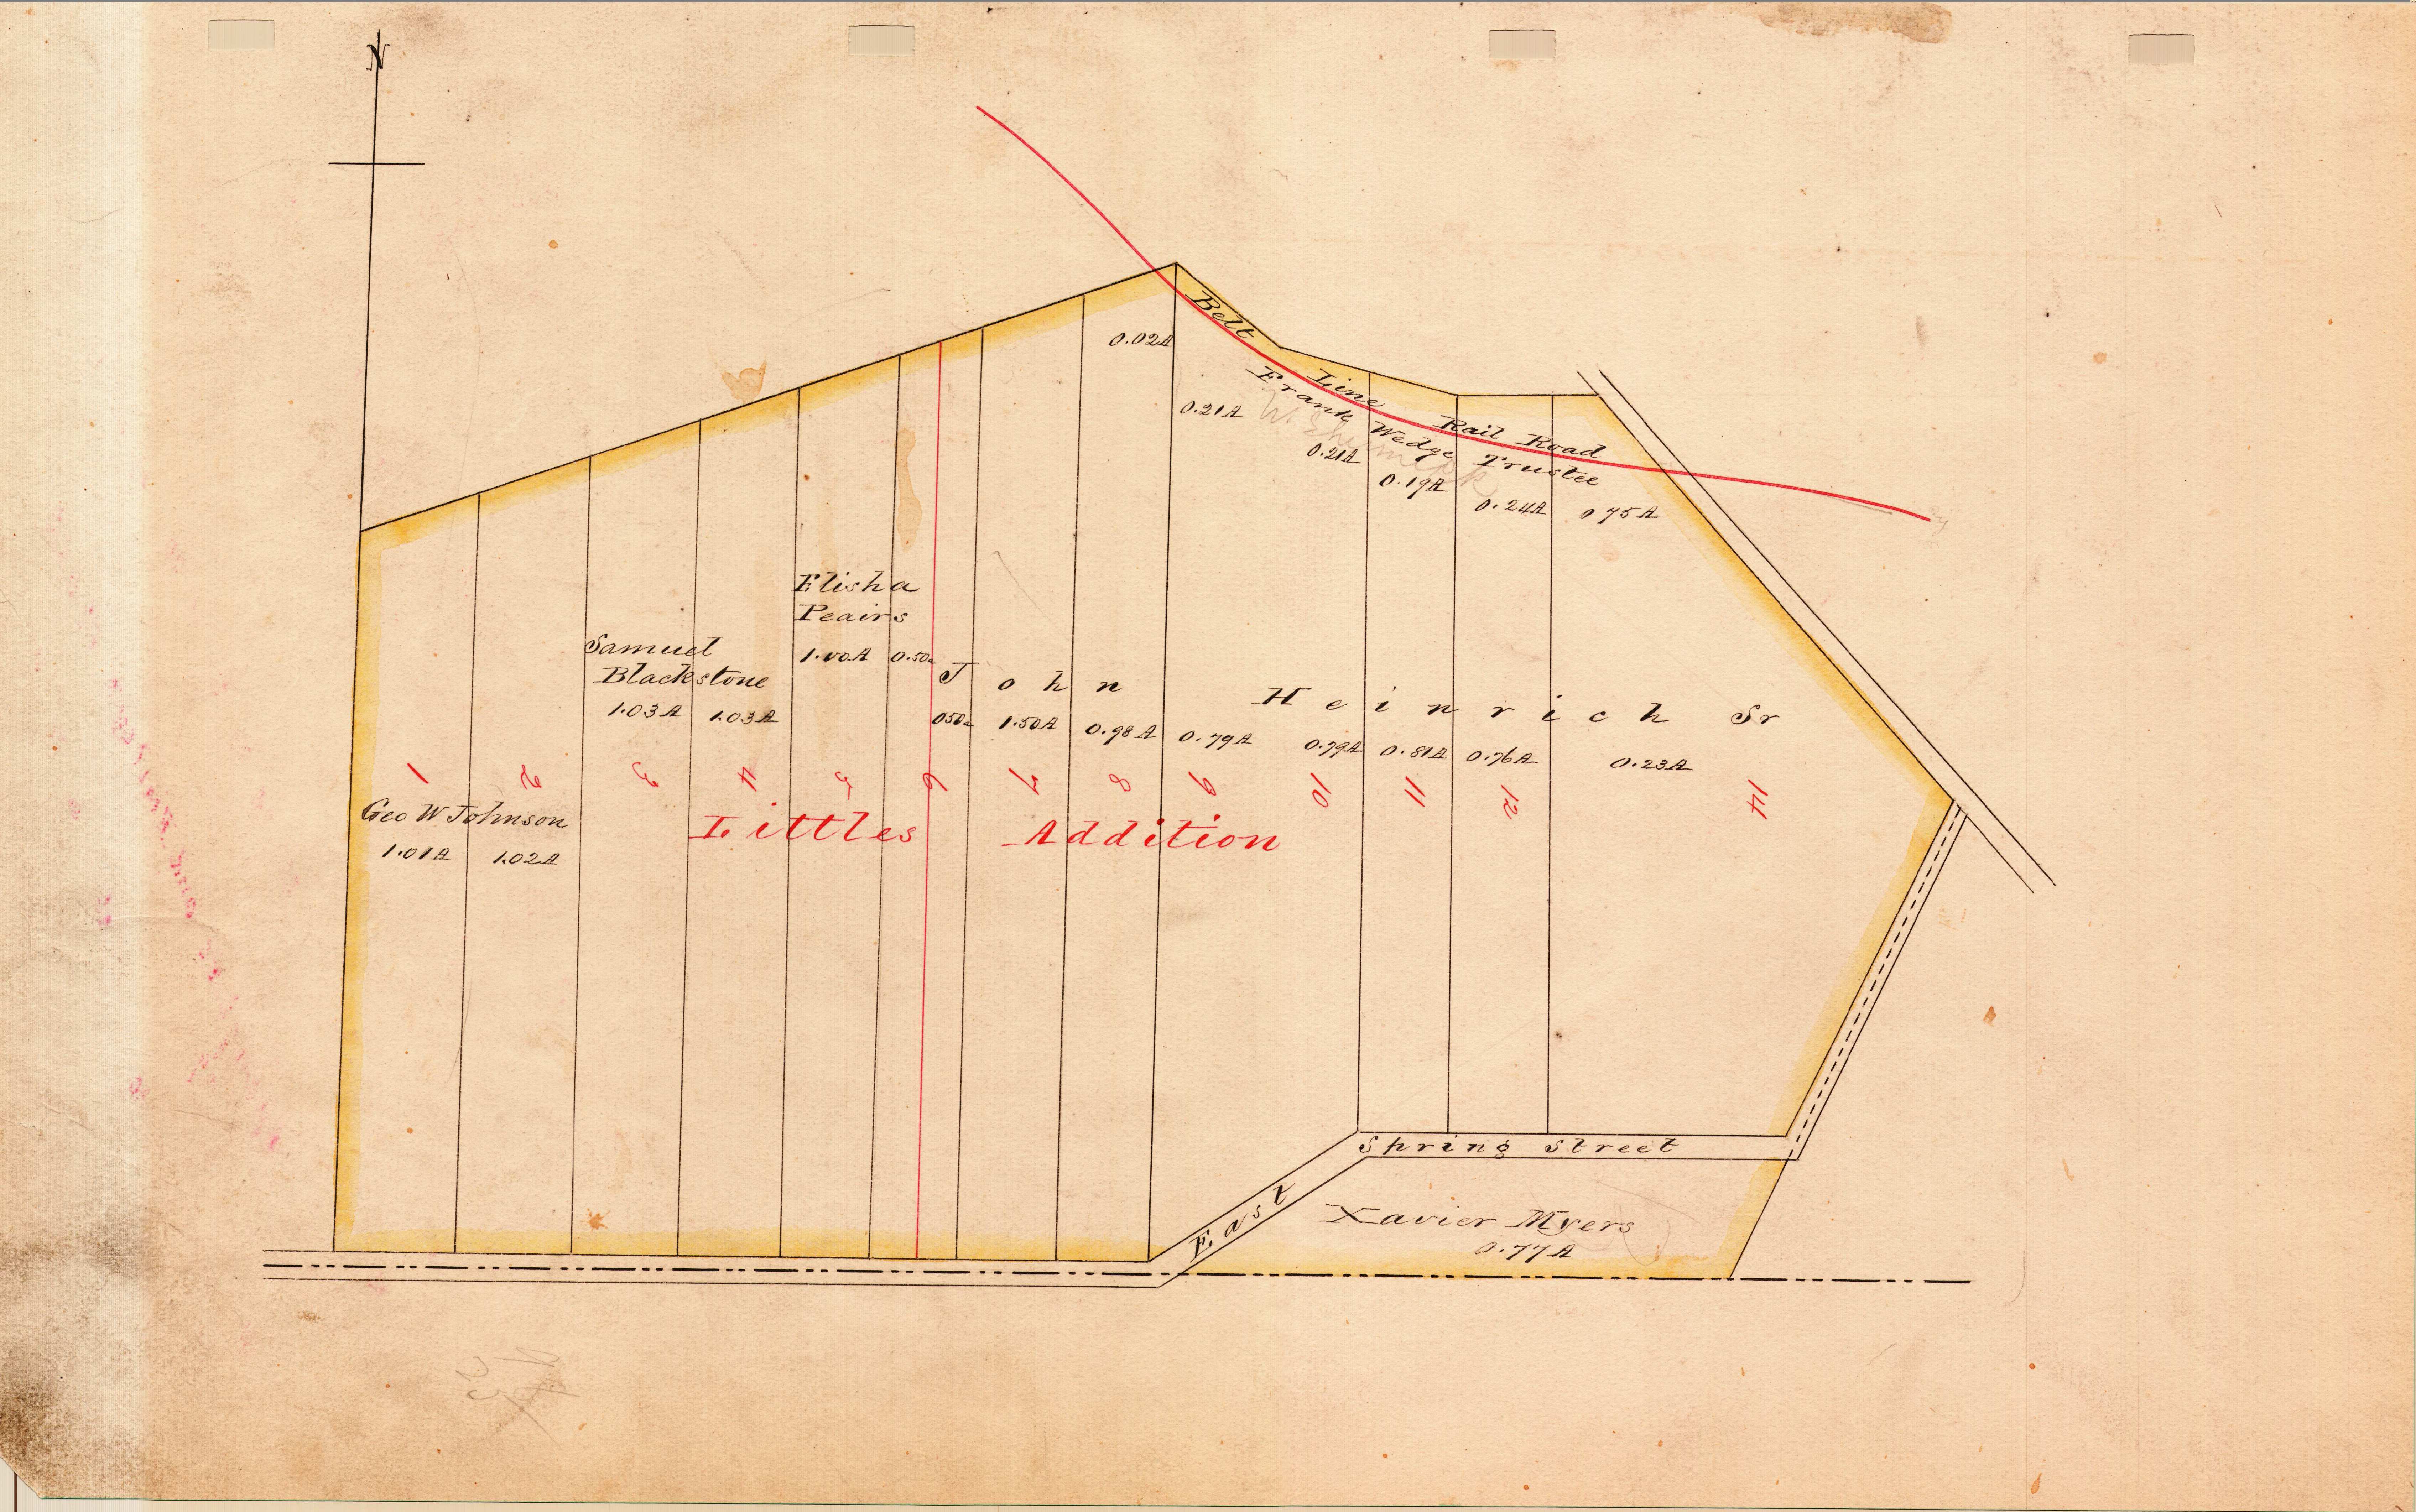 N
Belt Line Rail Road
Frank Wedge Trustee
0.02A
0.21A
0.21A
0.19A
0.24A
0 75A
Elisha
Peairs
1.00A 0.50a
Samuel
Blackstone
1.03A 1.03A
John Heinrich Sr
050a 1.50A 0.98A 0.79A 0.79A 0.81A 0.76A 0.23A
1 2 3 4 5 6 7 8 9 10 11 12 14
Geo W Johnson
1.01A 1.02A
Littles Addition
East Spring Street
Xavier Myers
0.77A